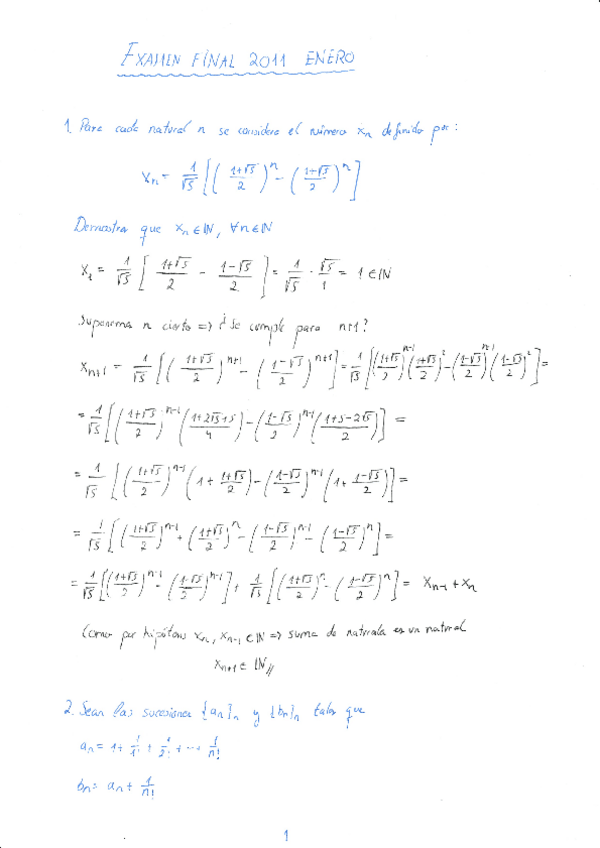 EXAMEN FINAL 2011 ENERO
1. Para cada natural n se considera el número xₙ definido por:
xₙ = 1/√5 [((1+√5)/2)ⁿ - ((1+√5)/2)ⁿ]
Demostrar que xₙ ∈ ℕ, ∀n∈ℕ
x₁ = 1/√5 [(1+√5)/2 - (1-√5)/2] = 1/√5 · √5/1 = 1 ∈ ℕ
Suponemos n cierto => ¿Se cumple para n+1?
xₙ₊₁ = 1/√5 [((1+√5)/2)ⁿ⁺¹ - ((1-√5)/2)ⁿ⁺¹] = 1/√5 [((1+√5)/2)ⁿ⁻¹ ((1+√5)/2)² - ((1-√5)/2)ⁿ⁻¹ ((1-√5)/2)²] =
= 1/√5 [((1+√5)/2)ⁿ⁻¹ ((1+2√5+5)/4) - ((1-√5)/2)ⁿ⁻¹ ((1+5-2√5)/2)] =
= 1/√5 [((1+√5)/2)ⁿ⁻¹ (1 + (1+√5)/2) - ((1-√5)/2)ⁿ⁻¹ (1 + (1-√5)/2)] =
= 1/√5 [((1+√5)/2)ⁿ⁻¹ + ((1+√5)/2)ⁿ - ((1-√5)/2)ⁿ⁻¹ - ((1-√5)/2)ⁿ] =
= 1/√5 [((1+√5)/2)ⁿ⁻¹ - ((1-√5)/2)ⁿ⁻¹] + 1/√5 [((1+√5)/2)ⁿ - ((1-√5)/2)ⁿ] = xₙ₋₁ + xₙ
Como por hipótesis xₙ, xₙ₋₁ ∈ ℕ => suma de naturales es un natural
xₙ₊₁ ∈ ℕ //
2. Sean las sucesiones {aₙ}ₙ y {bₙ}ₙ tales que
aₙ = 1 + 1/1! + 1/2! + ... + 1/n!
bₙ = aₙ + 1/n!
1